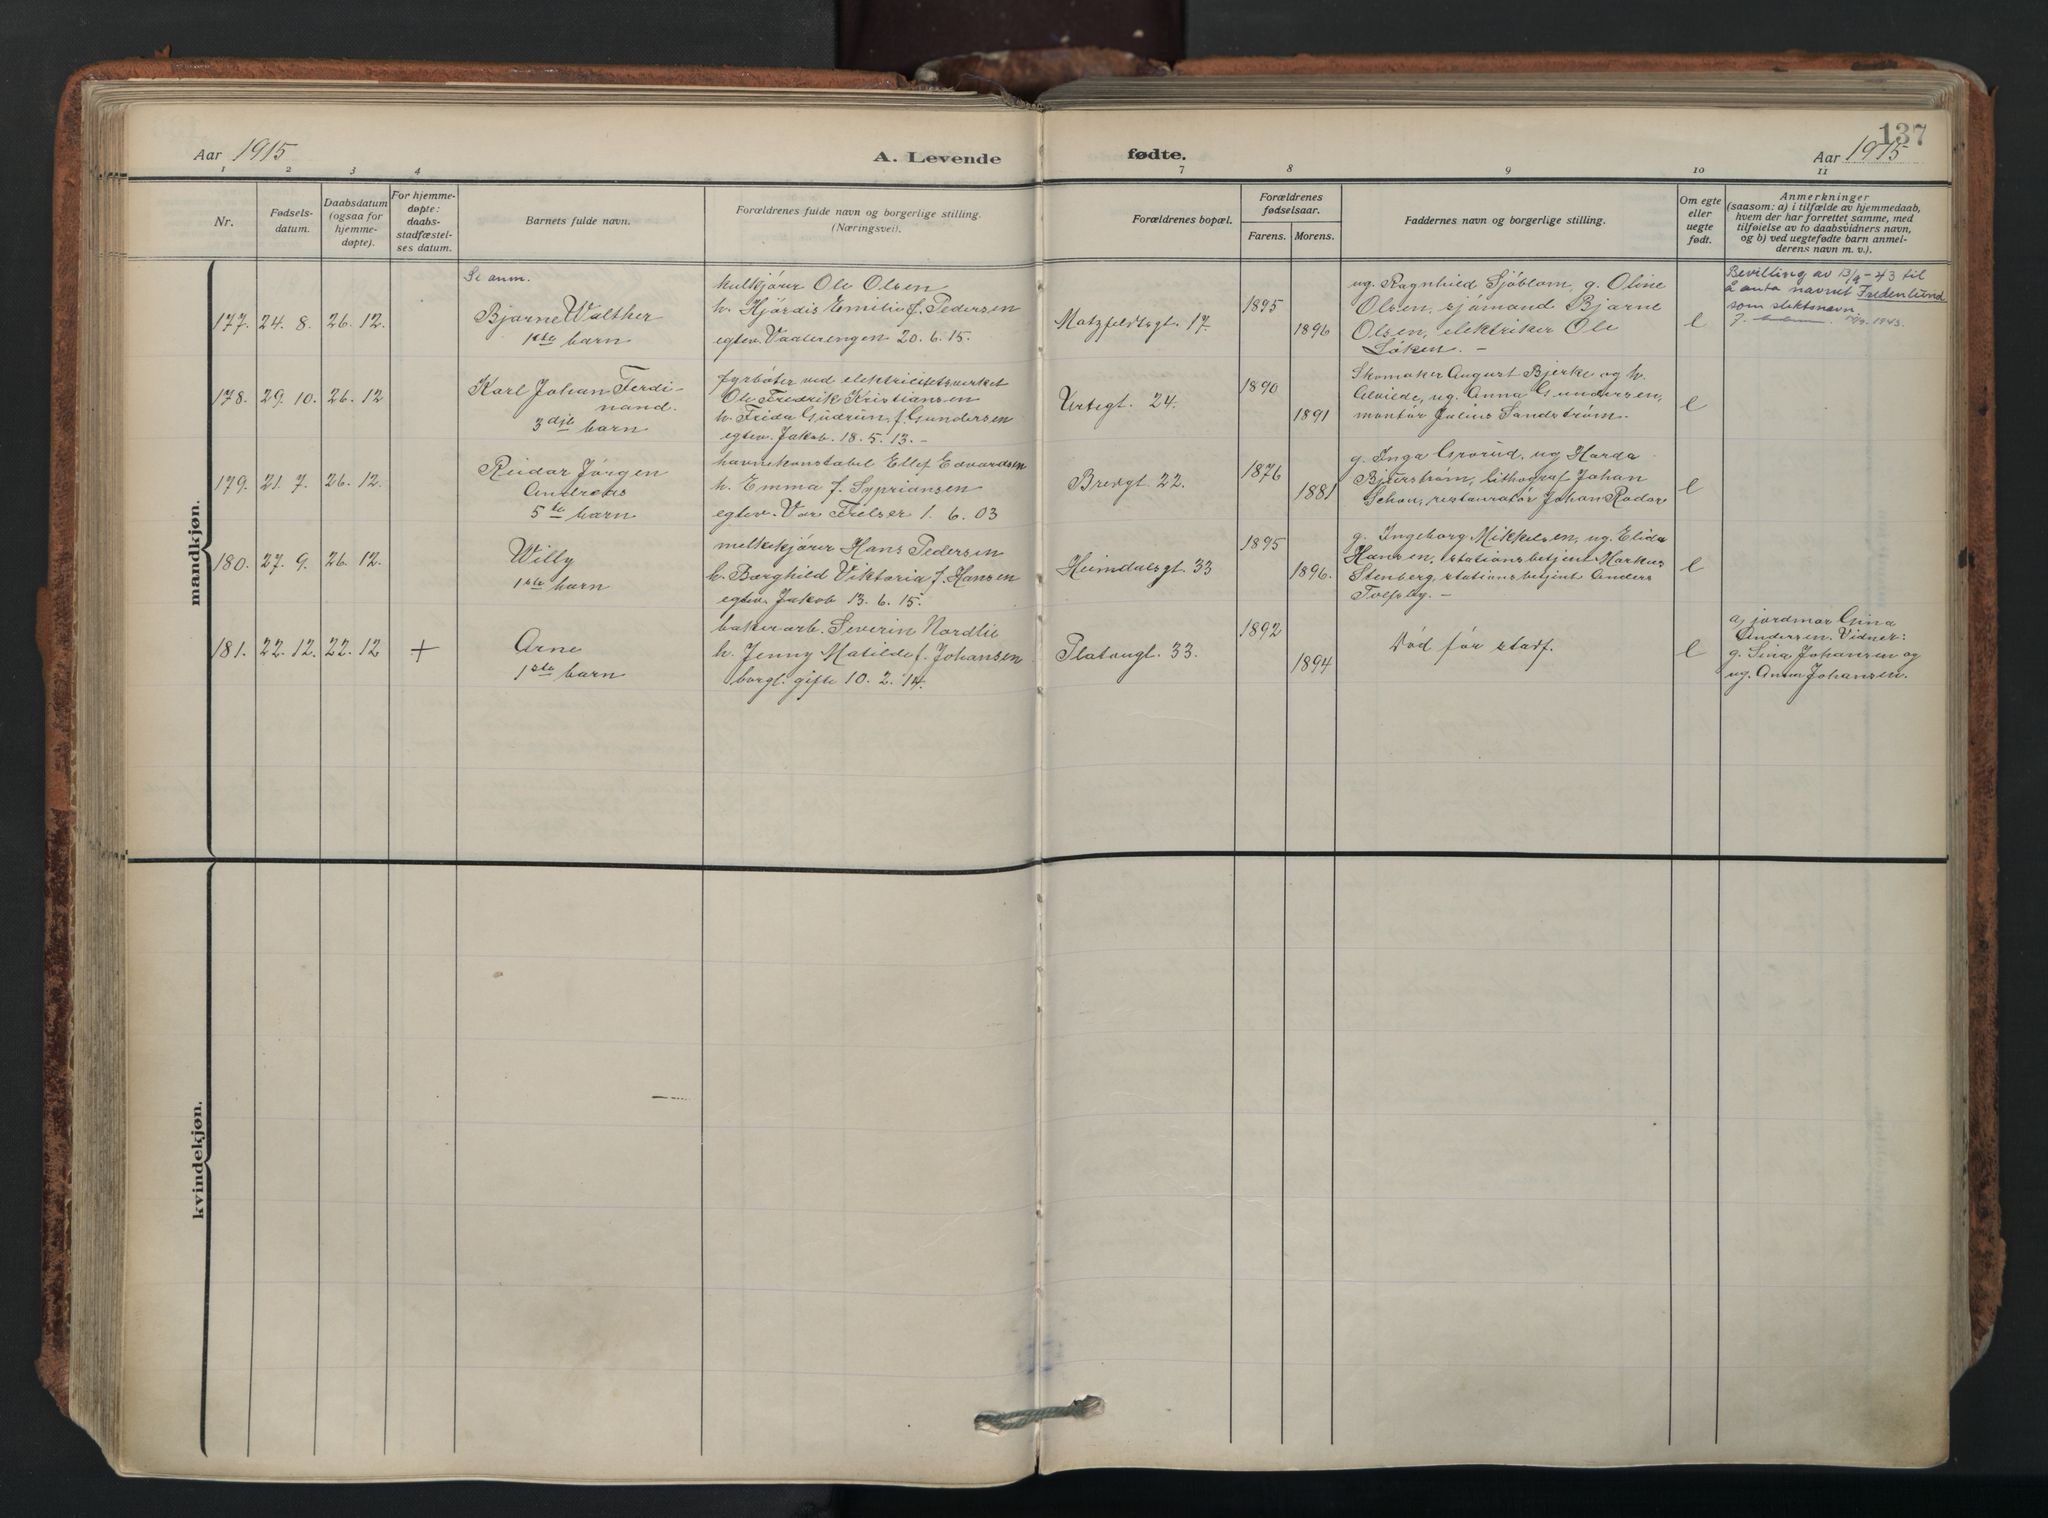 137
Aar 1915
A. Levende
fødte.
Aar 1915
1 2 3 4 7 8 9 10 11
Nr.
Fødsels-
datum.
Daabsdatum
(ogsaa for
hjemme-
døpte).
For hjemme-
døpte:
daabs-
stadfæstel-
ses datum.
Barnets fulde navn.
Forældrenes fulde navn og borgerlige stilling.
(Næringsvei).
Forældrenes bopæl.
Forældrenes
fødselsaar.
Farens. Morens.
Faddernes navn og borgerlige stilling.
Om egte
eller
uegte
født.
Anmerkninger
(saasom: a) i tilfælde av hjemmedaab,
hvem der har forrettet samme, med
tilføielse av to daabsvidners navn,
og b) ved uegtefødte barn anmel-
derens navn m. v.).
mandkjøn.
177. 24. 8. 26. 12.
Se anm.
Bjarne Walther
1ste barn
kulkjører Ole Olsen
h. Hjørdis Emilie f. Pedersen
egtev. Vaalerengen 20. 6. 15.
Motzfeldtsgt. 17.
1895
1896
ug. Ragnhild Sjöblom, g. Oline
Olsen, sjömand Bjarne
Olsen, elektriker Ole
Löken. —
e
Bevilling av 13/9-43 til
å anta navnet Fredenlund
som slektsnavn.
1943.
178. 29. 10. 26. 12
Karl Johan Ferdi-
nand.
3dje barn
fyrbøter ved elektricitetsverket
Ole Fredrik Kristiansen
h. Frida Gudrun, f. Gundersen
egtev. Jakob. 18. 5. 13. —
Urtegt. 24.
1890
1891
Skomaker August Bjerke og h.
Alvilde, ug. Anna Gundersen,
montör Julius Sandström.
e
179. 21. 7. 26. 12.
Reidar Jörgen
Andreas
5te barn
havnekonstabel Ellef Edvardsen
h. Emma f. Sypriansen
egtev. Vor Frelser 1. 6. 03
Brevgt. 22.
1876
1881
g. Inga Grorud, ug Harda
Bjerström, lithograf Johan
Schou, restauratör Johan Rodor
e
180. 27. 9. 26. 12.
Willy
1ste barn
melkekjører Hans Pedersen
h. Borghild Viktoria f. Hansen
egtev. Jakob 13. 6. 15.
Heimdalsgt. 33
1895
1896.
g. Ingeborg Mikkelsen, ug. Elida
Hansen, stationsbetjent Markus
Stenberg, stationsbetjent Anders
Tvefsby. —
e
181. 22. 12. 22. 12 +
Arne
1ste barn
bakerarb. Severin Nordlie
h. Jenny Matilde f. Johansen
borgl. gifte 10. 2. 14.
Platougt. 33.
1892
1894
Död för stadf.
e
a) jordmor Gina
Andersen. Vidner:
g. Sina Johansen og
ug. Anna Johansen.
kvindekjøn.